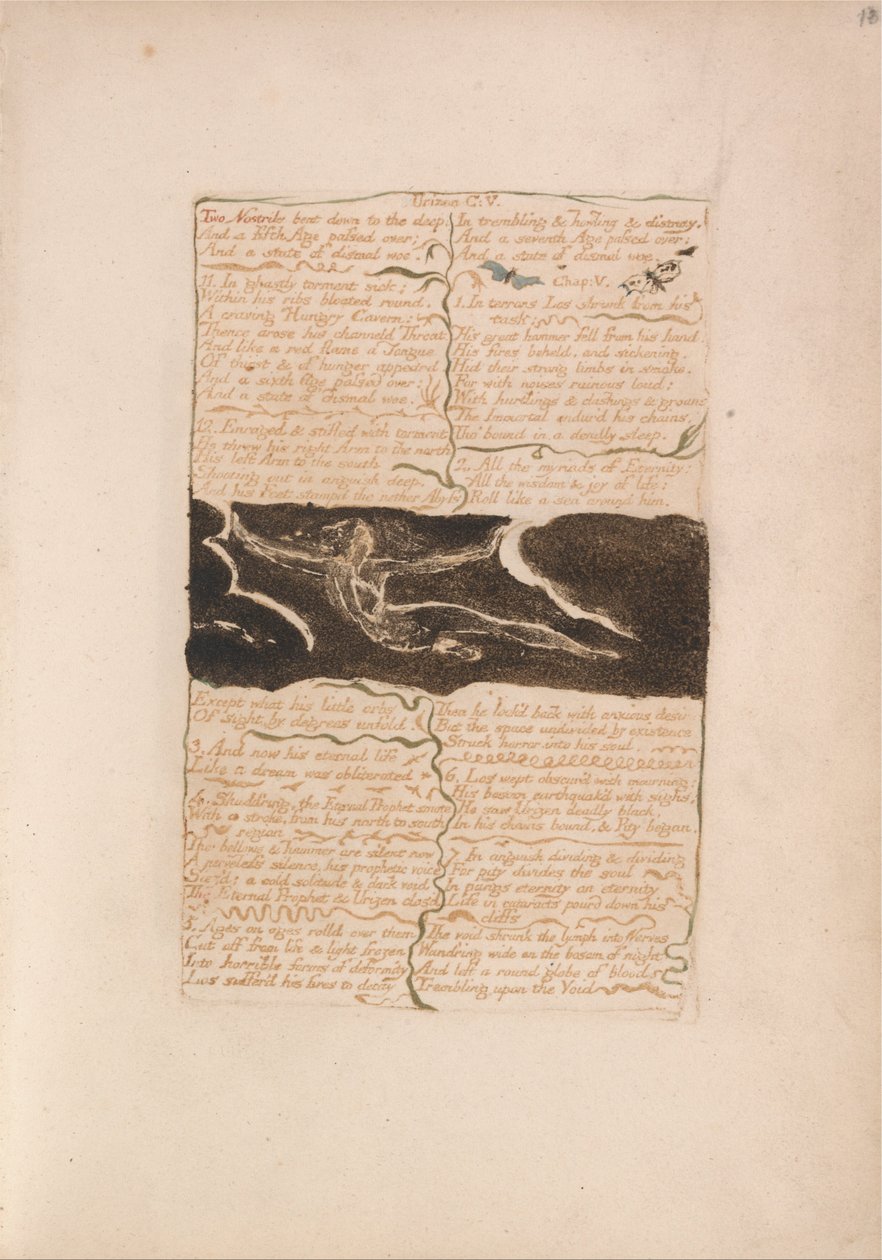 13
Urizen C: V.
Two Nostrils bent down to the deep.
And a fifth Age passed over;
And a state of dismal woe.
11. In ghastly torment sick;
Within his ribs bloated round,
A craving Hungry Cavern;
Thence arose his channeld Throat
And like a red flame a Tongue
Of thirst & of hunger appeard
And a sixth Age passed over:
And a state of dismal woe.
12. Enraged & stifled with torment
He threw his right Arm to the north
His left Arm to the south
Shooting out in anguish deep,
And his Feet stampd the nether Abyss
In trembling & howling & dismay.
And a seventh Age passed over:
And a state of dismal woe.
Chap: V.
1. In terrors Los shrunk from his
task:
His great hammer fell from his hand:
His fires beheld, and sickening,
Hid their strong limbs in smoke.
For with noises ruinous loud;
With hurtlings & clashings & groans
The Immortal endur'd his chains,
Tho' bound in a deadly sleep.
2. All the myriads of Eternity:
All the wisdom & joy of life:
Roll like a sea around him,
Except what his little orbs
Of sight by degrees unfold.
3. And now his eternal life
Like a dream was obliterated
4. Shudd'ring, the Eternal Prophet smote
With a stroke, from his north to south
region
The bellows & hammer are silent now
A nerveless silence, his prophetic voice
Siez'd; a cold solitude & dark void
The Eternal Prophet & Urizen clos'd
5. Ages on ages rolld over them
Cut off from life & light frozen
Into horrible forms of deformity
Los suffer'd his fires to decay
Then he look'd back with anxious desire
But the space undivided by existence
Struck horror into his soul.
6. Los wept obscur'd with mourning:
His bosom earthquak'd with sighs;
He saw Urizen deadly black,
In his chains bound, & Pity began,
7. In anguish dividing & dividing
For pity divides the soul
In pangs eternity on eternity
Life in cataracts pourd down his
cliffs
The void shrunk the lymph into Nerves
Wandring wide on the bosom of night
And left a round globe of blood
Trembling upon the Void